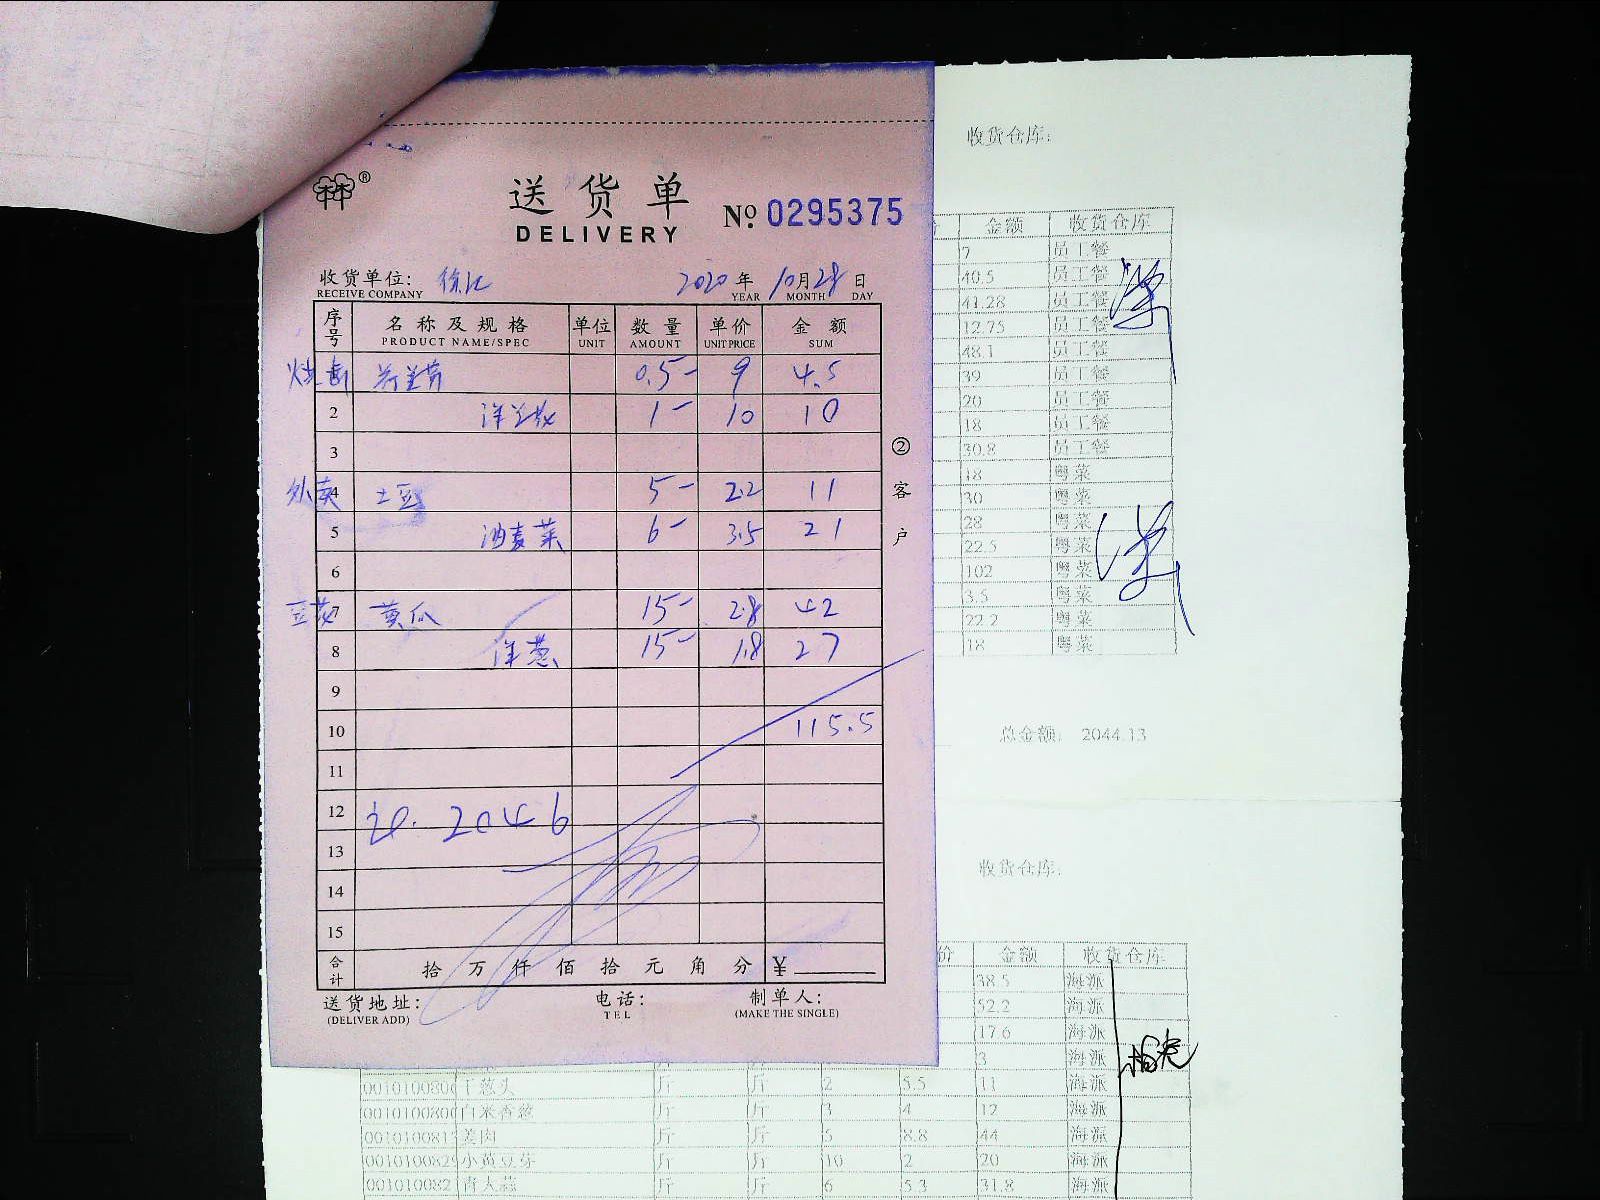 送货单
DELIVERY
№ 0295375
收货单位: 徐记 2020年10月28日
RECEIVE COMPANY YEAR MONTH DAY
序号 名称及规格 单位 数量 单价 金额
PRODUCT NAME/SPEC UNIT AMOUNT UNIT PRICE SUM
0.5- 9 4.5
2 1- 10 10
3
外卖 4 土豆 5- 2.2 11
5 油麦菜 6- 3.5 21
6
7 黄瓜 15- 2.8 42
8 洋葱 15- 1.8 27
9
10 115.5
11
12 2046
13
14
15
合计 拾万仟佰拾元角分 ¥
送货地址: 电话: 制单人:
(DELIVER ADD) TEL (MAKE THE SINGLE)
②客户
收货仓库:
金额 收货仓库
7 员工餐
40.5 员工餐
41.28 员工餐
12.75 员工餐
48.1 员工餐
39 员工餐
20 员工餐
18 员工餐
30.8 员工餐
18 粤菜
30 粤菜
28 粤菜
22.5 粤菜
102 粤菜
3.5 粤菜
22.2 粤菜
18 粤菜
总金额: 2044.13
收货仓库:
价 金额 收货仓库
38.5 海派
52.2 海派
17.6 海派
3 海派
干葱头 斤 斤 2 5.5 11 海派
斤 斤 3 4 12 海派
姜肉 斤 斤 5 8.8 44 海派
小黄豆芽 斤 斤 10 2 20 海派
青大蒜 斤 斤 6 5.3 31.8 海派